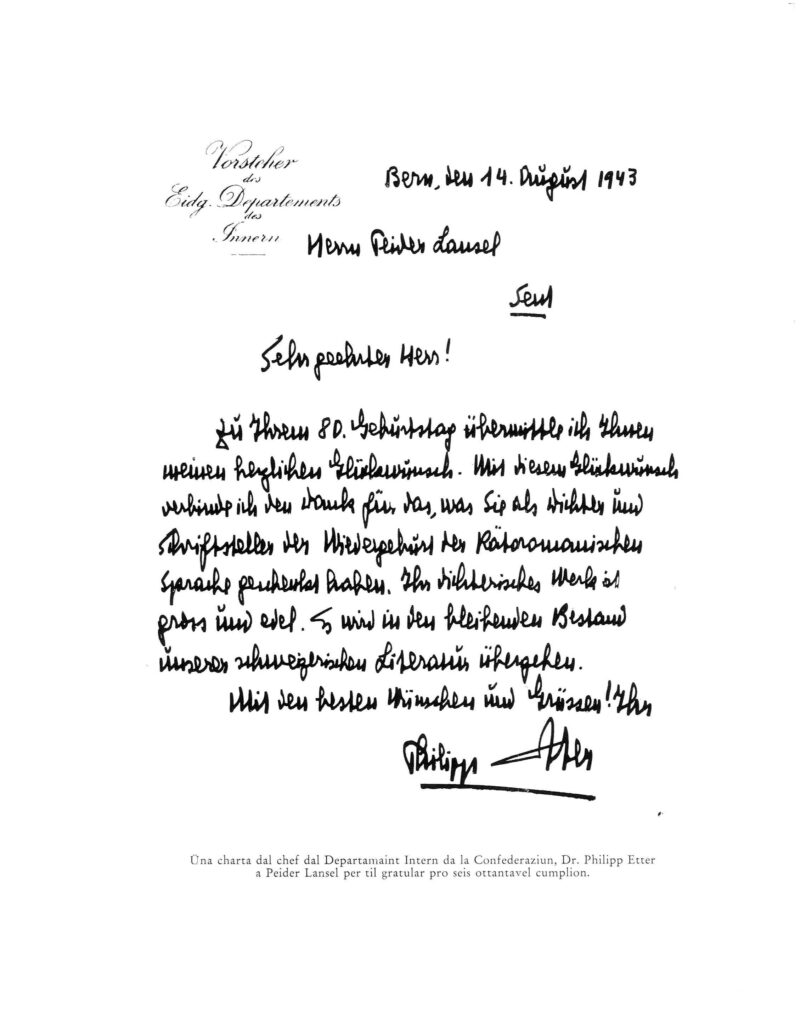 Vorsteher
des
Eidg. Departements
des
Innern
Bern, den 14. August 1943
Herrn Peider Lansel
Sent
Sehr geehrter Herr!
Zu Ihrem 80. Geburtstag übermittle ich Ihnen
meinen herzlichen Glückwunsch. Mit diesem Glückwunsch
verbinde ich den Dank für das, was Sie als Dichter und
Schriftsteller der Wiedergeburt der Rätoromanischen
Sprache geschenkt haben. Ihr dichterisches Werk ist
gross und edel. Es wird in den bleibenden Bestand
unserer schweizerischen Literatur übergehen.
Mit den besten Wünschen und Grüssen! Ihr
Philipp Etter
Üna charta dal chef dal Departamaint Intern da la Confederaziun, Dr. Philipp Etter
a Peider Lansel per til gratular pro seis ottantavel cumplion.